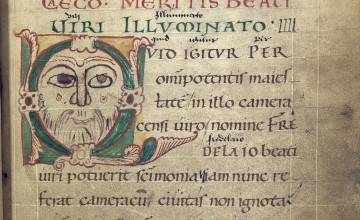 CAECO· MERITIS BEATI
VIRI ILLUMINATO· IIII
QUID IGITUR PER
omipotentis maies
tate in illo camera
censi uiro nomine FRE
DELAIO beati
uiri potuerit scimonia iam nunc re
ferat cameracū ciuitas non ignota